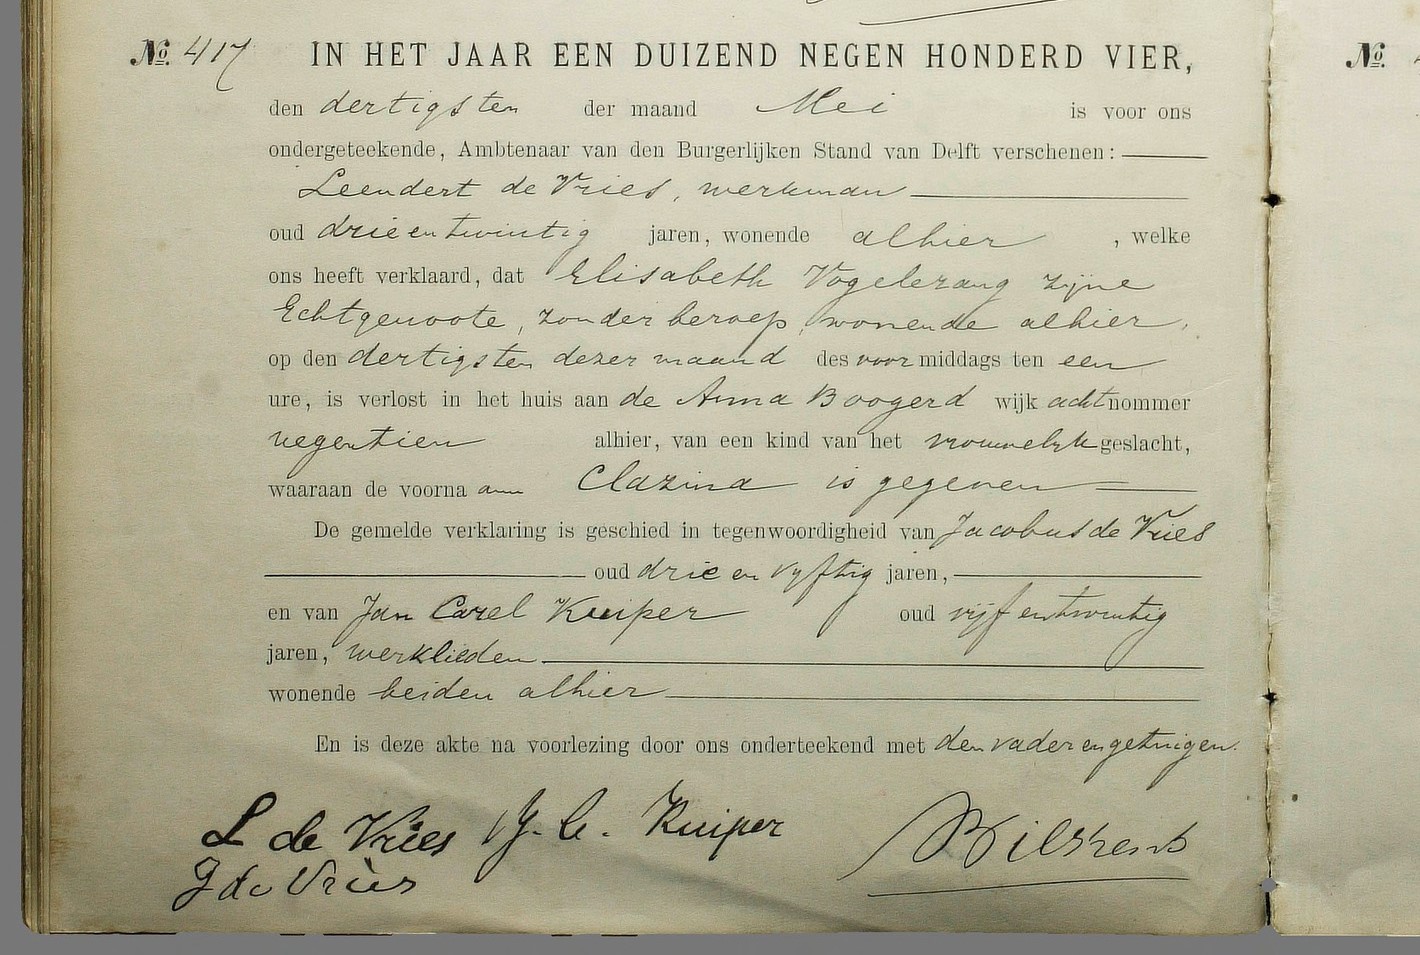 № 417 IN HET JAAR EEN DUIZEND NEGEN HONDERD VIER,
den dertigsten der maand Mei is voor ons
ondergeteekende, Ambtenaar van den Burgerlijken Stand van Delft verschenen:
Leendert de Vries, werkman
oud drieentwintig jaren, wonende alhier, welke
ons heeft verklaard, dat Elisabeth Vogelezang zijne
Echtgenoote, zonder beroep, wonende alhier,
op den dertigsten dezer maand des voormiddags ten een
ure, is verlost in het huis aan de Anna Boogerd wijk acht nommer
negentien alhier, van een kind van het vrouwelijk geslacht,
waaraan de voornaam Clazina is gegeven
De gemelde verklaring is geschied in tegenwoordigheid van Jacobus de Vries
oud drie en vyftig jaren,
en van Jan Carel Kuiper oud vijfentwintig
jaren, werklieden
wonende beiden alhier
En is deze akte na voorlezing door ons onderteekend met den vader en getuigen.
L de Vries J. C. Kuiper
J de Vries
№